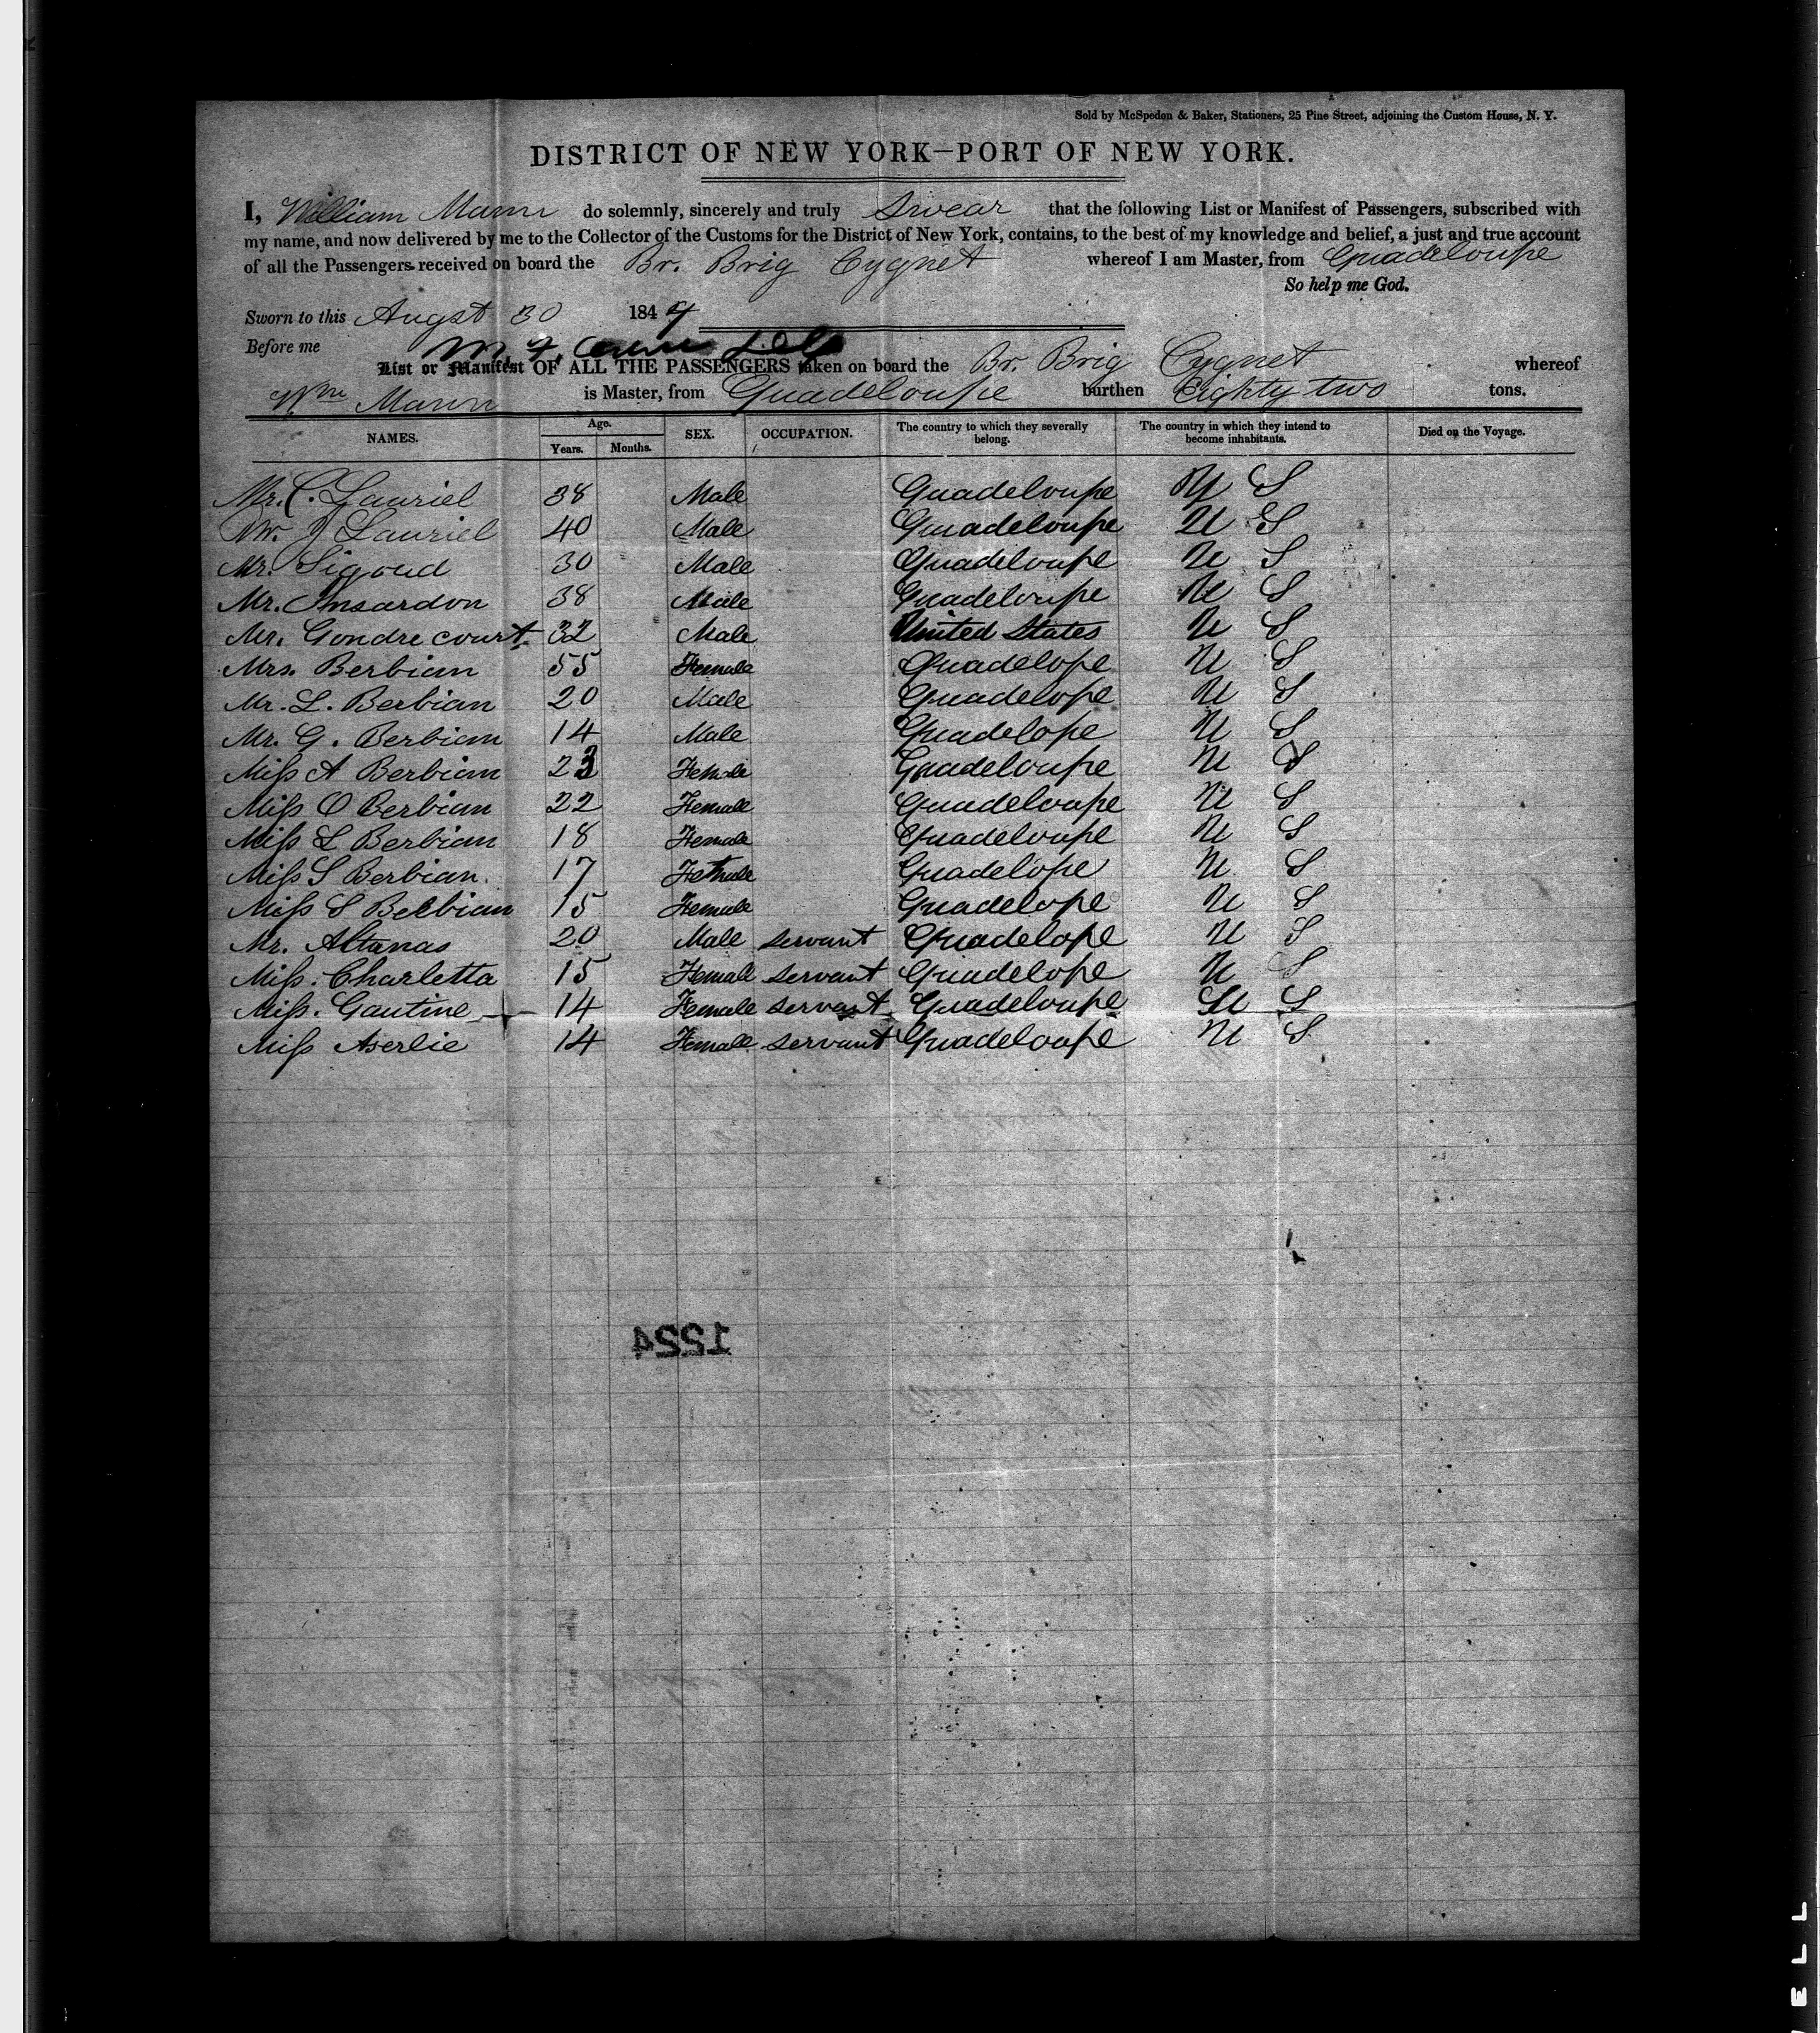 Sold by McSpedon & Baker, Stationers, 25 Pine Street, adjoining the Custom House, N. Y.
DISTRICT OF NEW YORK—PORT OF NEW YORK.
I, William Mann do solemnly, sincerely and truly swear that the following List or Manifest of Passengers, subscribed with
my name, and now delivered by me to the Collector of the Customs for the District of New York, contains, to the best of my knowledge and belief, a just and true account
of all the Passengers received on board the Br. Brig Cygnet whereof I am Master, from Guadeloupe
So help me God.
Sworn to this Augst 30 1849
Before me
List or Manifest OF ALL THE PASSENGERS taken on board the Br. Brig Cygnet whereof
Wm Mann is Master, from Guadeloupe burthen Eighty two tons.
NAMES. Age. Years. Months. SEX. OCCUPATION. The country to which they severally belong. The country in which they intend to become inhabitants. Died on the Voyage.
Mr. C. Lauriel 38 Male Guadeloupe U S
Mr. J Lauriel 40 Male Guadeloupe U S
Mr. Sigoud 30 Male Guadeloupe U S
Mr. Insardon 38 Male Guadeloupe U S
Mr. Gondrecourt 32 Male United States U S
Mrs. Berbian 55 Female Guadelope U S
Mr. L. Berbian 20 Male Guadelope U S
Mr. G. Berbian 14 Male Guadelope U S
Miss A Berbian 23 Female Guadeloupe U S
Miss O Berbian 22 Female Guadeloupe U S
Miss L Berbian 18 Female Guadeloupe U S
Miss S Berbian 17 Female Guadelope U S
Miss S Berbian 15 Female Guadelope U S
Mr. Altanas 20 Male servant Guadelope U S
Miss. Charletta 15 Female servant Guadelope U S
Miss. Gautine 14 Female servant Guadeloupe U S
Miss Aserlie 14 Female servant Guadeloupe U S
1224